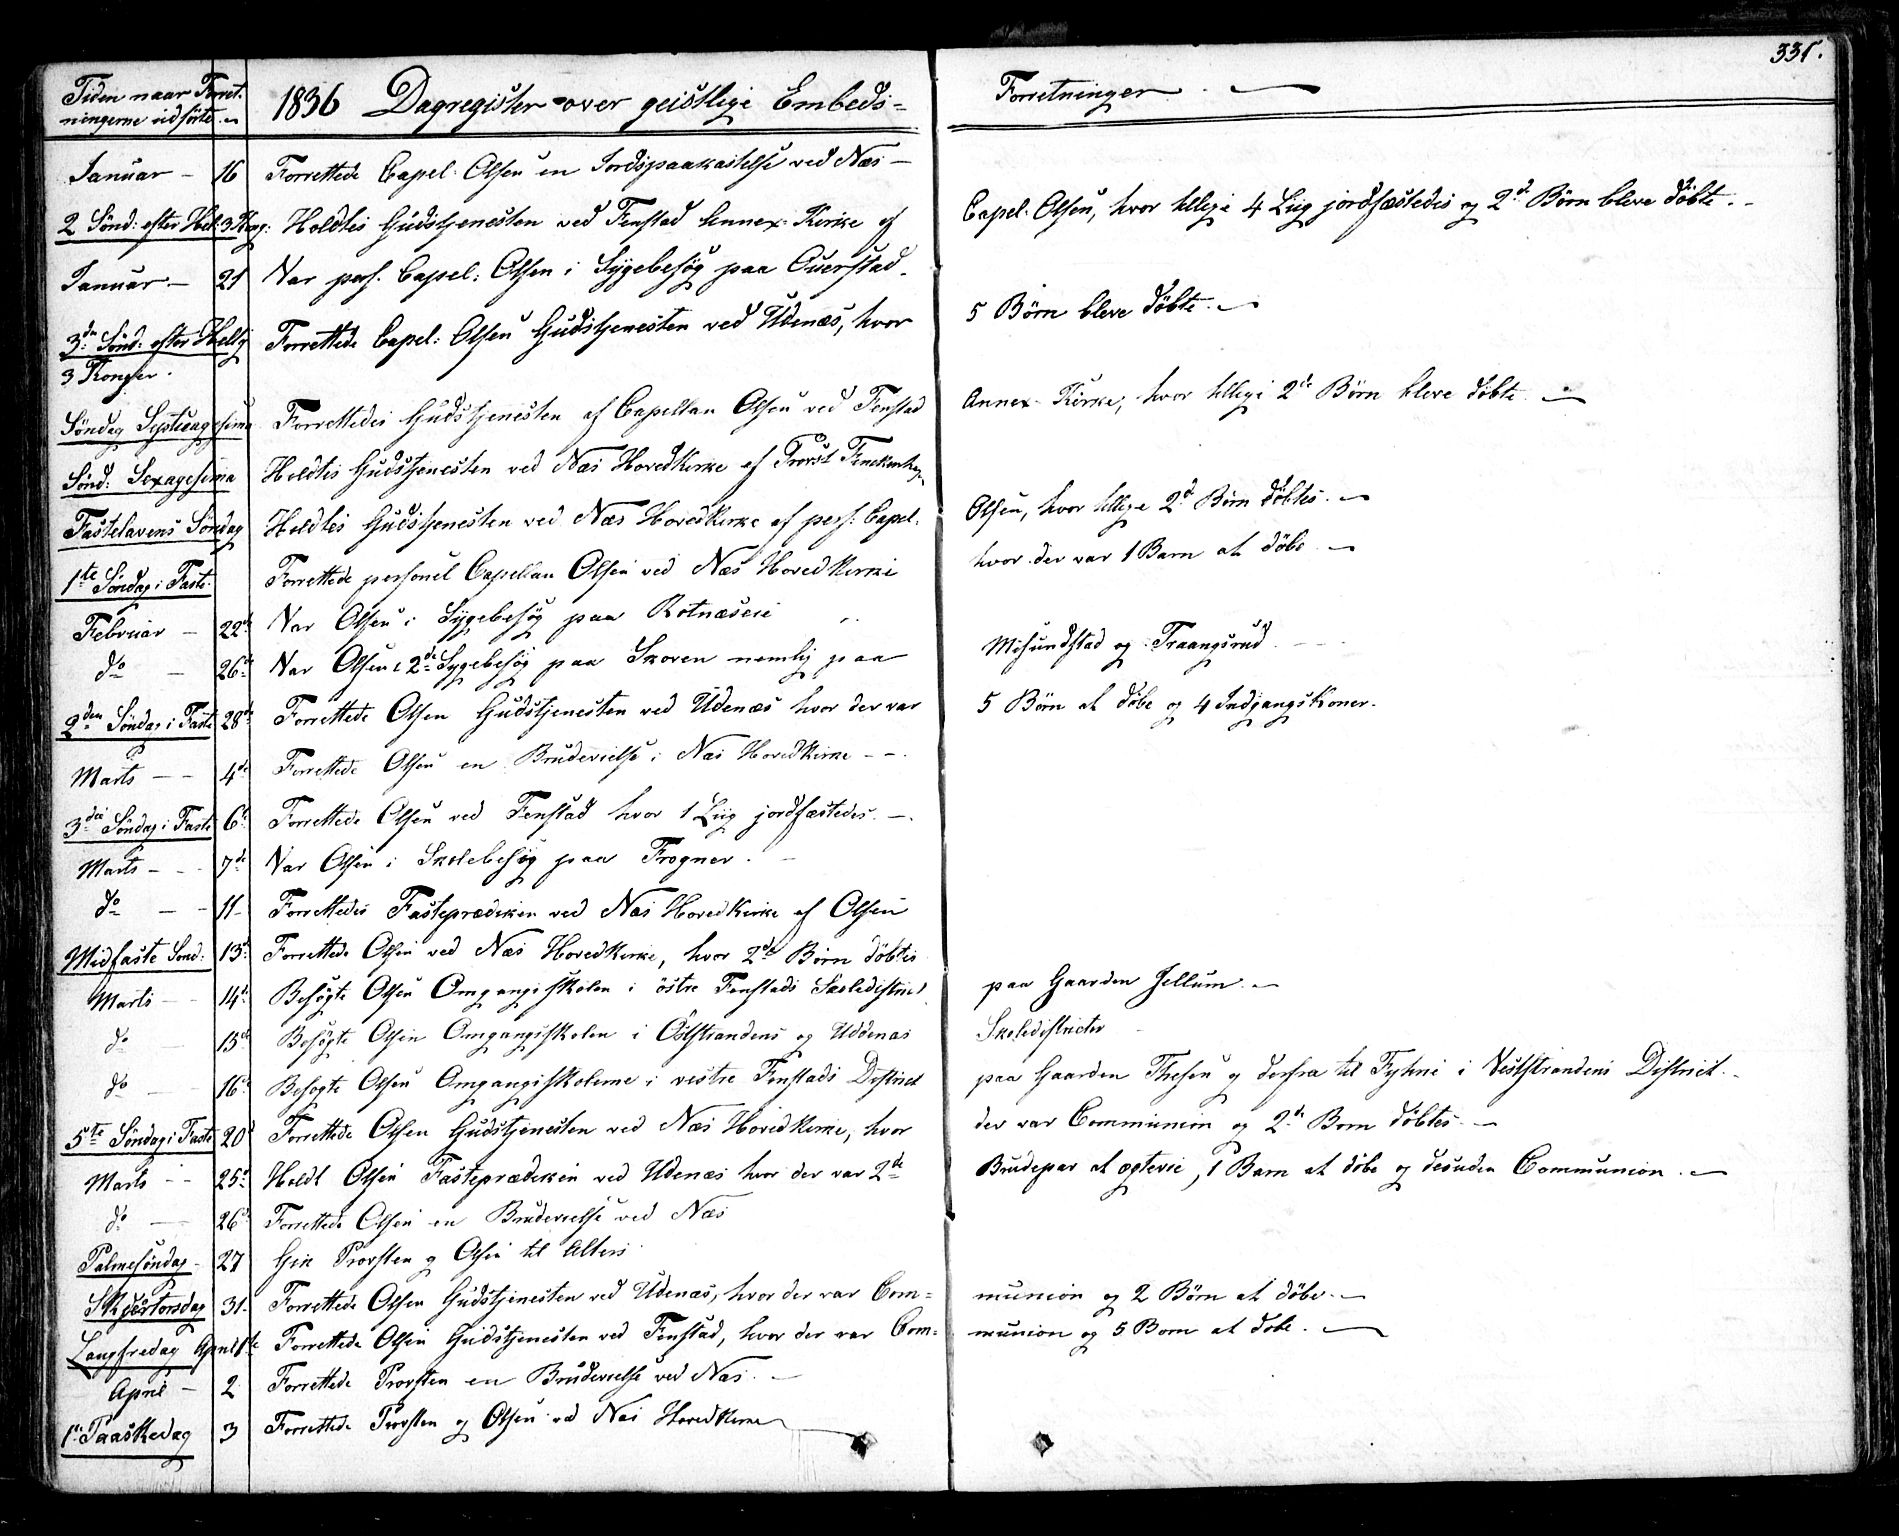 331.
Tiden naar Forret-
ningerne udførte.
1836 Dagregister over geistlige Embeds=
Forretninger.
Januar - 16 Forrettede Capel: Olsen en Jordspaakastelse ved Næs -
2 Sønd: efter Hel: 3 Kong: Holdtes Gudstjenesten ved Fenstad Annex-Kirke af
Capel: Olsen, hvor tillige 4 Liig jordfæstedes og 2de Børn bleve døbte.
Januar - 21 Var pers. Capel: Olsen i Sygebesøg paa Ouerstad.
3die Sønd: efter Hellig 3 Konger. Forrettede Capel: Olsen Gudstjenesten ved Udenæs, hvor
5 Børn bleve døbte.
Søndag Septuagesima Forrettedes Gudstjenesten af Capellan Olsen ved Fenstad
Annex-Kirke, hvor tillige 2de Børn bleve døbte
Sønd: Sexagesima Holdtes Gudstjenesten ved Næs Hovedkirke af Provst
Fastelavens Søndag Holdtes Gudstjenesten ved Næs Hovedkirke af pers: Capel.
Olsen, hvor tillige 2de Børn døbtes.
1te Søndag i Faste. Forrettede personel Capellan Olsen ved Næs Hovedkirke
hvor der var 1 Barn at døbe
Februar - 22de Var Olsen i Sygebesøg paa Rotnæseie
do - 26de Var Olsen i 2de Sygebesøg paa Skoven nemlig paa
Misundstad og Traangsrud
2den Søndag i Faste 28de Forrettede Olsen Gudstjenesten ved Udenæs hvor der var
5 Børn at døbe og 4 Indgangskoner.
Marts - - 4de Forrettede Olsen en Brudevielse i Næs Hovedkirke - -.
3die Søndag i Faste 6te Forrettede Olsen ved Fenstad hvor 1 Liig jordfæstedes. -.
Marts - - 7de Var Olsen i Skolebesøg paa Frogner.
do - - 11- Forrettedes Fasteprædiken ved Næs Hovedkirke af Olsen
Midfaste Sønd: 13de Forrettede Olsen ved Næs Hovedkirke, hvor 2de Børn døbtes
Marts - 14de Besøgte Olsen Omgangsskolen i østre Fenstads Skoledistrict
paa Gaarden Jellum. -
do - 15de Besøgte Olsen Omgangsskolen i Oststrandens og Uddenæs
Skoledistricter
do - 16de Besøgte Olsen Omgangsskolerne i vestre Fenstads District
paa Gaarden Thesen og derfra til Fyhne i Veststrandens District. -
5te Søndag i Faste 20de Forrettede Olsen Gudstjenesten ved Næs Hovedkirke, hvor
der var Communion og 2de Born døbtes. -
Marts - - 25de Holdt Olsen Fasteprædiken ved Udenæs hvor der var 2de
Brudepar at ægtevie, 1 Barn at døbe og desuden Communion. -
do - 26de Forrettede Olsen en Brudevielse ved Næs
Palmesøndag - 27 Gik Provsten og Olsen til Alters
Skjertorsdag 31- Forrettede Olsen Gudstjenesten ved Udenæs, hvor der var Com=
munion og 2 Børn at døbe. -
Langfredag April 1te Forrettede Olsen Gudstjenesten ved Fenstad, hvor der var Com=
munion og 5 Born at døbe. -
April - 2 Forrettede Provsten en Brudevielse ved Næs. -
1te Paaskedag 3 Forrettede Provsten og Olsen ved Næs Hovedkirke